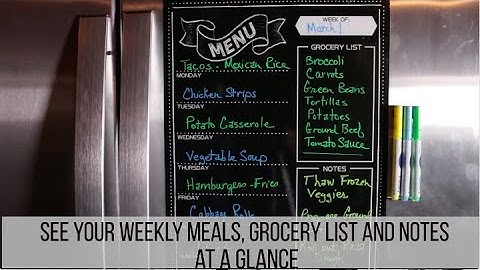 MENU
Tacos - Mexican Rice
MONDAY
Chicken Strips
TUESDAY
Potato Casserole
WEDNESDAY
Vegetable Soup
THURSDAY
Hamburgers - Fries
FRIDAY
Cabbage Roll
WEEK OF:
March 1
GROCERY LIST
Broccoli
Carrots
Green Beans
Tortillas
Potatoes
Ground Beef
Tomato Sauce
NOTES
Thaw Frozen
Veggies
Ground
Roll out Pizza
Dough
SEE YOUR WEEKLY MEALS, GROCERY LIST AND NOTES
AT A GLANCE